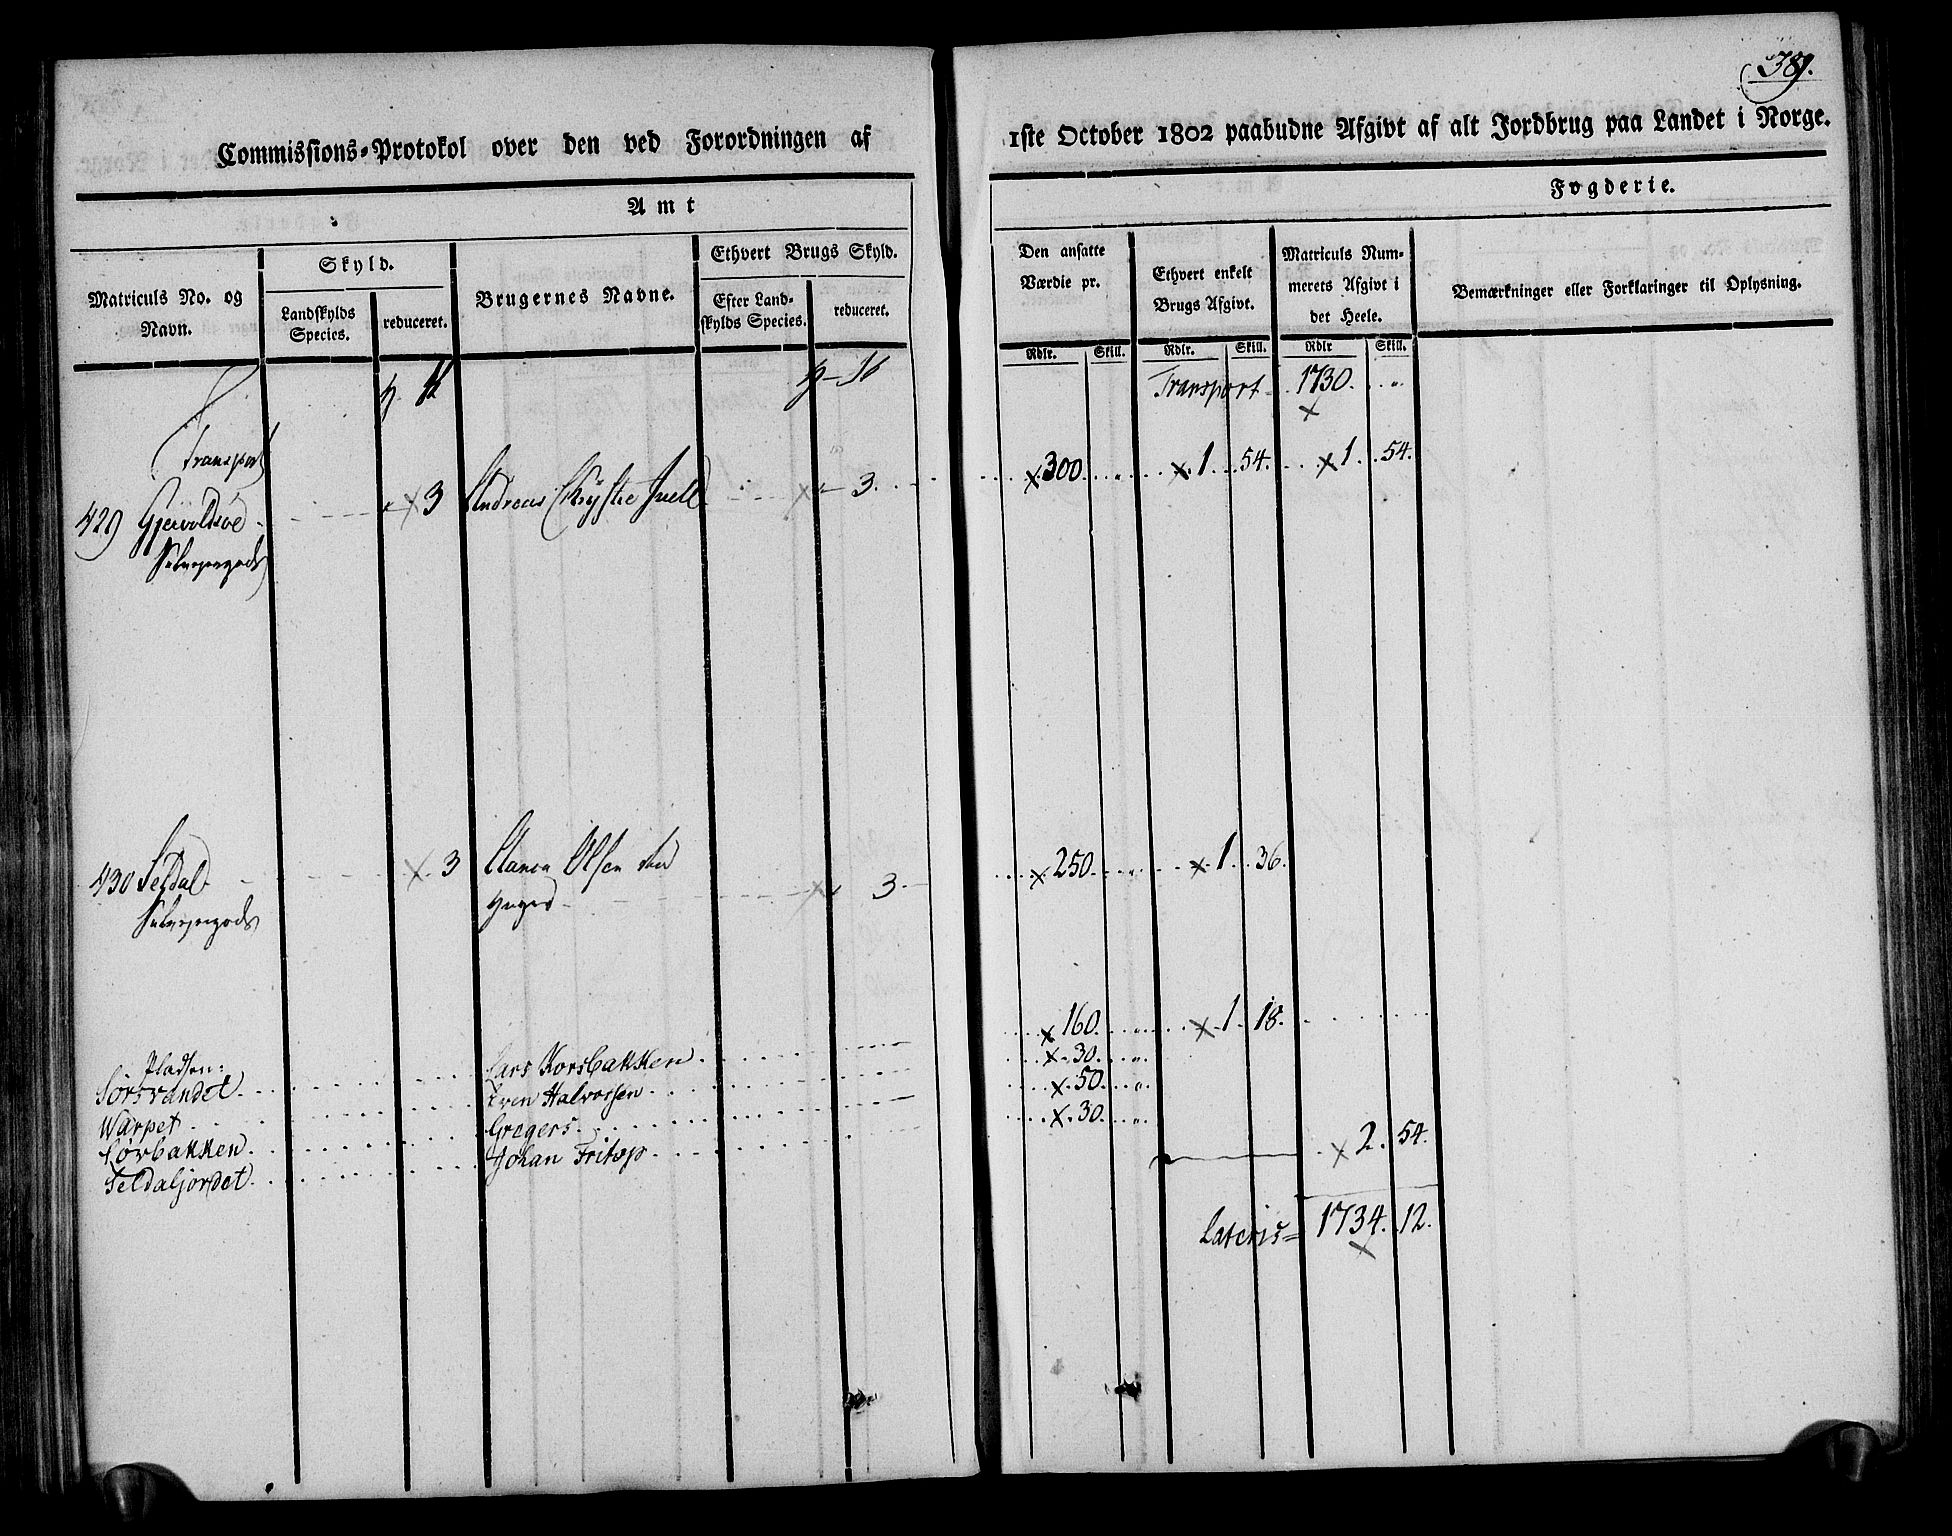 389.
Commissions-Protokol over den ved Forordningen af
1ste October 1802 paabudne Afgivt af alt Jordbrug paa Landet i Norge.
Amt
Fogderie.
Matriculs No. og Navn.
Skyld.
Landskylds Species.
reduceret.
Brugernes Navne.
Ethvert Brugs Skyld.
Efter Landskylds Species.
reduceret.
Den ansatte Værdie pr.
Ethvert enkelt Brugs Afgivt.
Matriculs Nummerets Afgivt i det Heele.
Bemærkninger eller Forklaringer til Oplysning.
Rdlr. Skill. Rdlr. Skill. Rdlr Skill.
Transport 1730. "
Transport
429 Gjervoldsøe 3 Andreas Chrystie Juell 3. 300. " 1. 54. 1. 54.
Selveyergods
430 Seldal 3 Olsen 3. 250. " 1. 36.
Selveyergods
160. " 1. 18.
Pladsen:
Sørsvandet Lars Korsbakken 30. "
Warpet Even Halvorsen 50. "
Sørbakken Gregers 30. "
Seldaljordet Johan Fritsp
2. 54.
Lateris = 1734. 12.